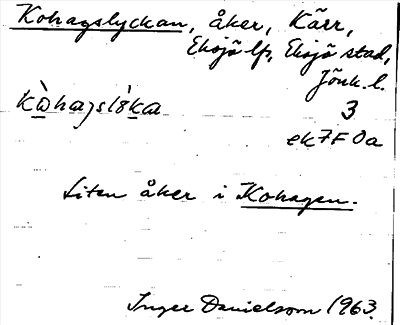 Kohagslyckan, åker, Kärr,
Eksjö lfs, Eksjö stad,
Jönk. l.
3
ek 7F 0a
Liten åker i Kohagen.
Inger Danielsson 1963.